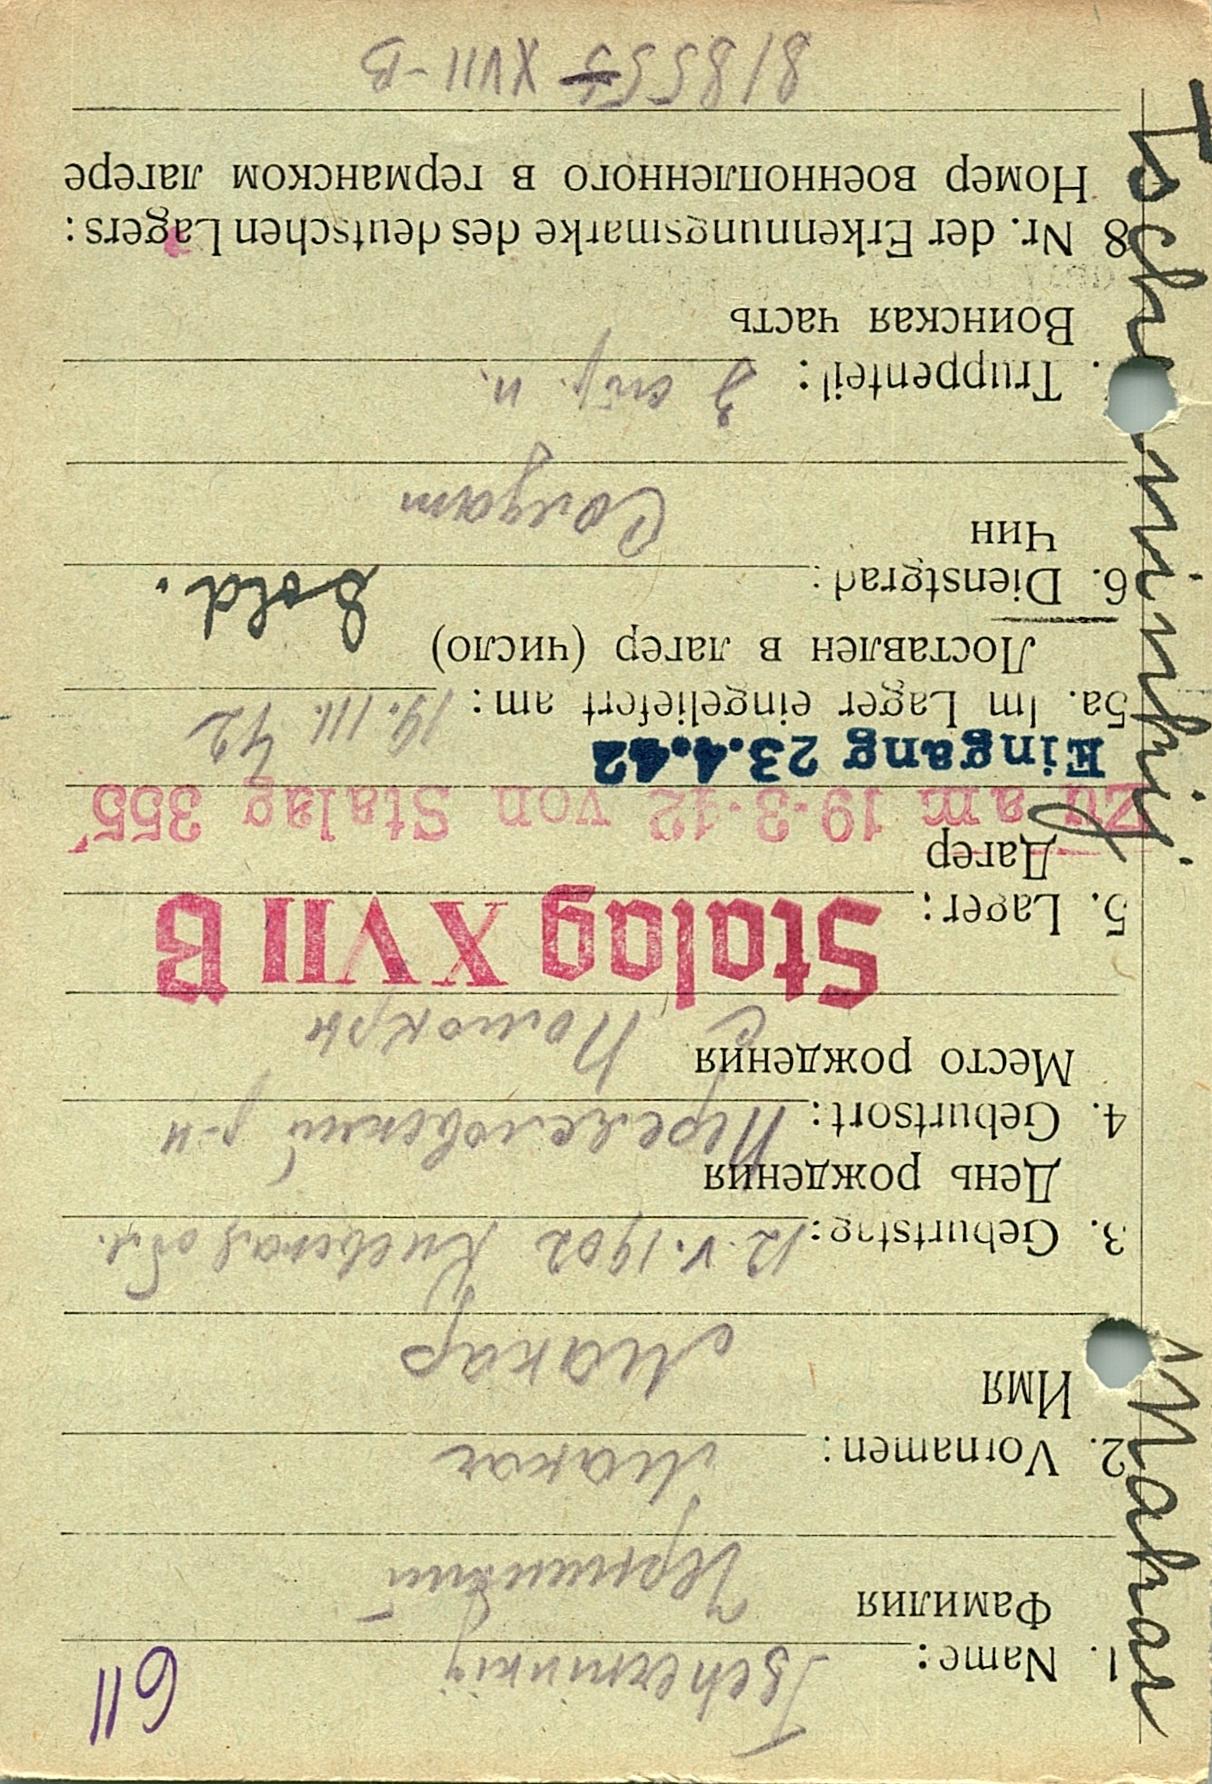 611
1. Name: Tscherninkij
Фамилия Чернинкий
2. Vornamen: Makar
Имя Макар
3. Geburtstag: 12.V.1902 Киевская обл.
День рождения
4. Geburtsort:
Место рождения с
5. Lager: Stalag XVII B
Лагер
Zu am 19·3·42 von Stalag 355
Eingang 23.4.42
5a. Im Lager eingeliefert am: 19.III.42
Доставлен в лагер (число)
6. Dienstgrad: Sold.
Чин Солдат
Truppenteil: 3 стр. п.
Воинская часть
8 Nr. der Erkennungsmarke des deutschen Lagers:
Номер военнопленного в германском лагере
XVII-B
Makar Tscherninkij